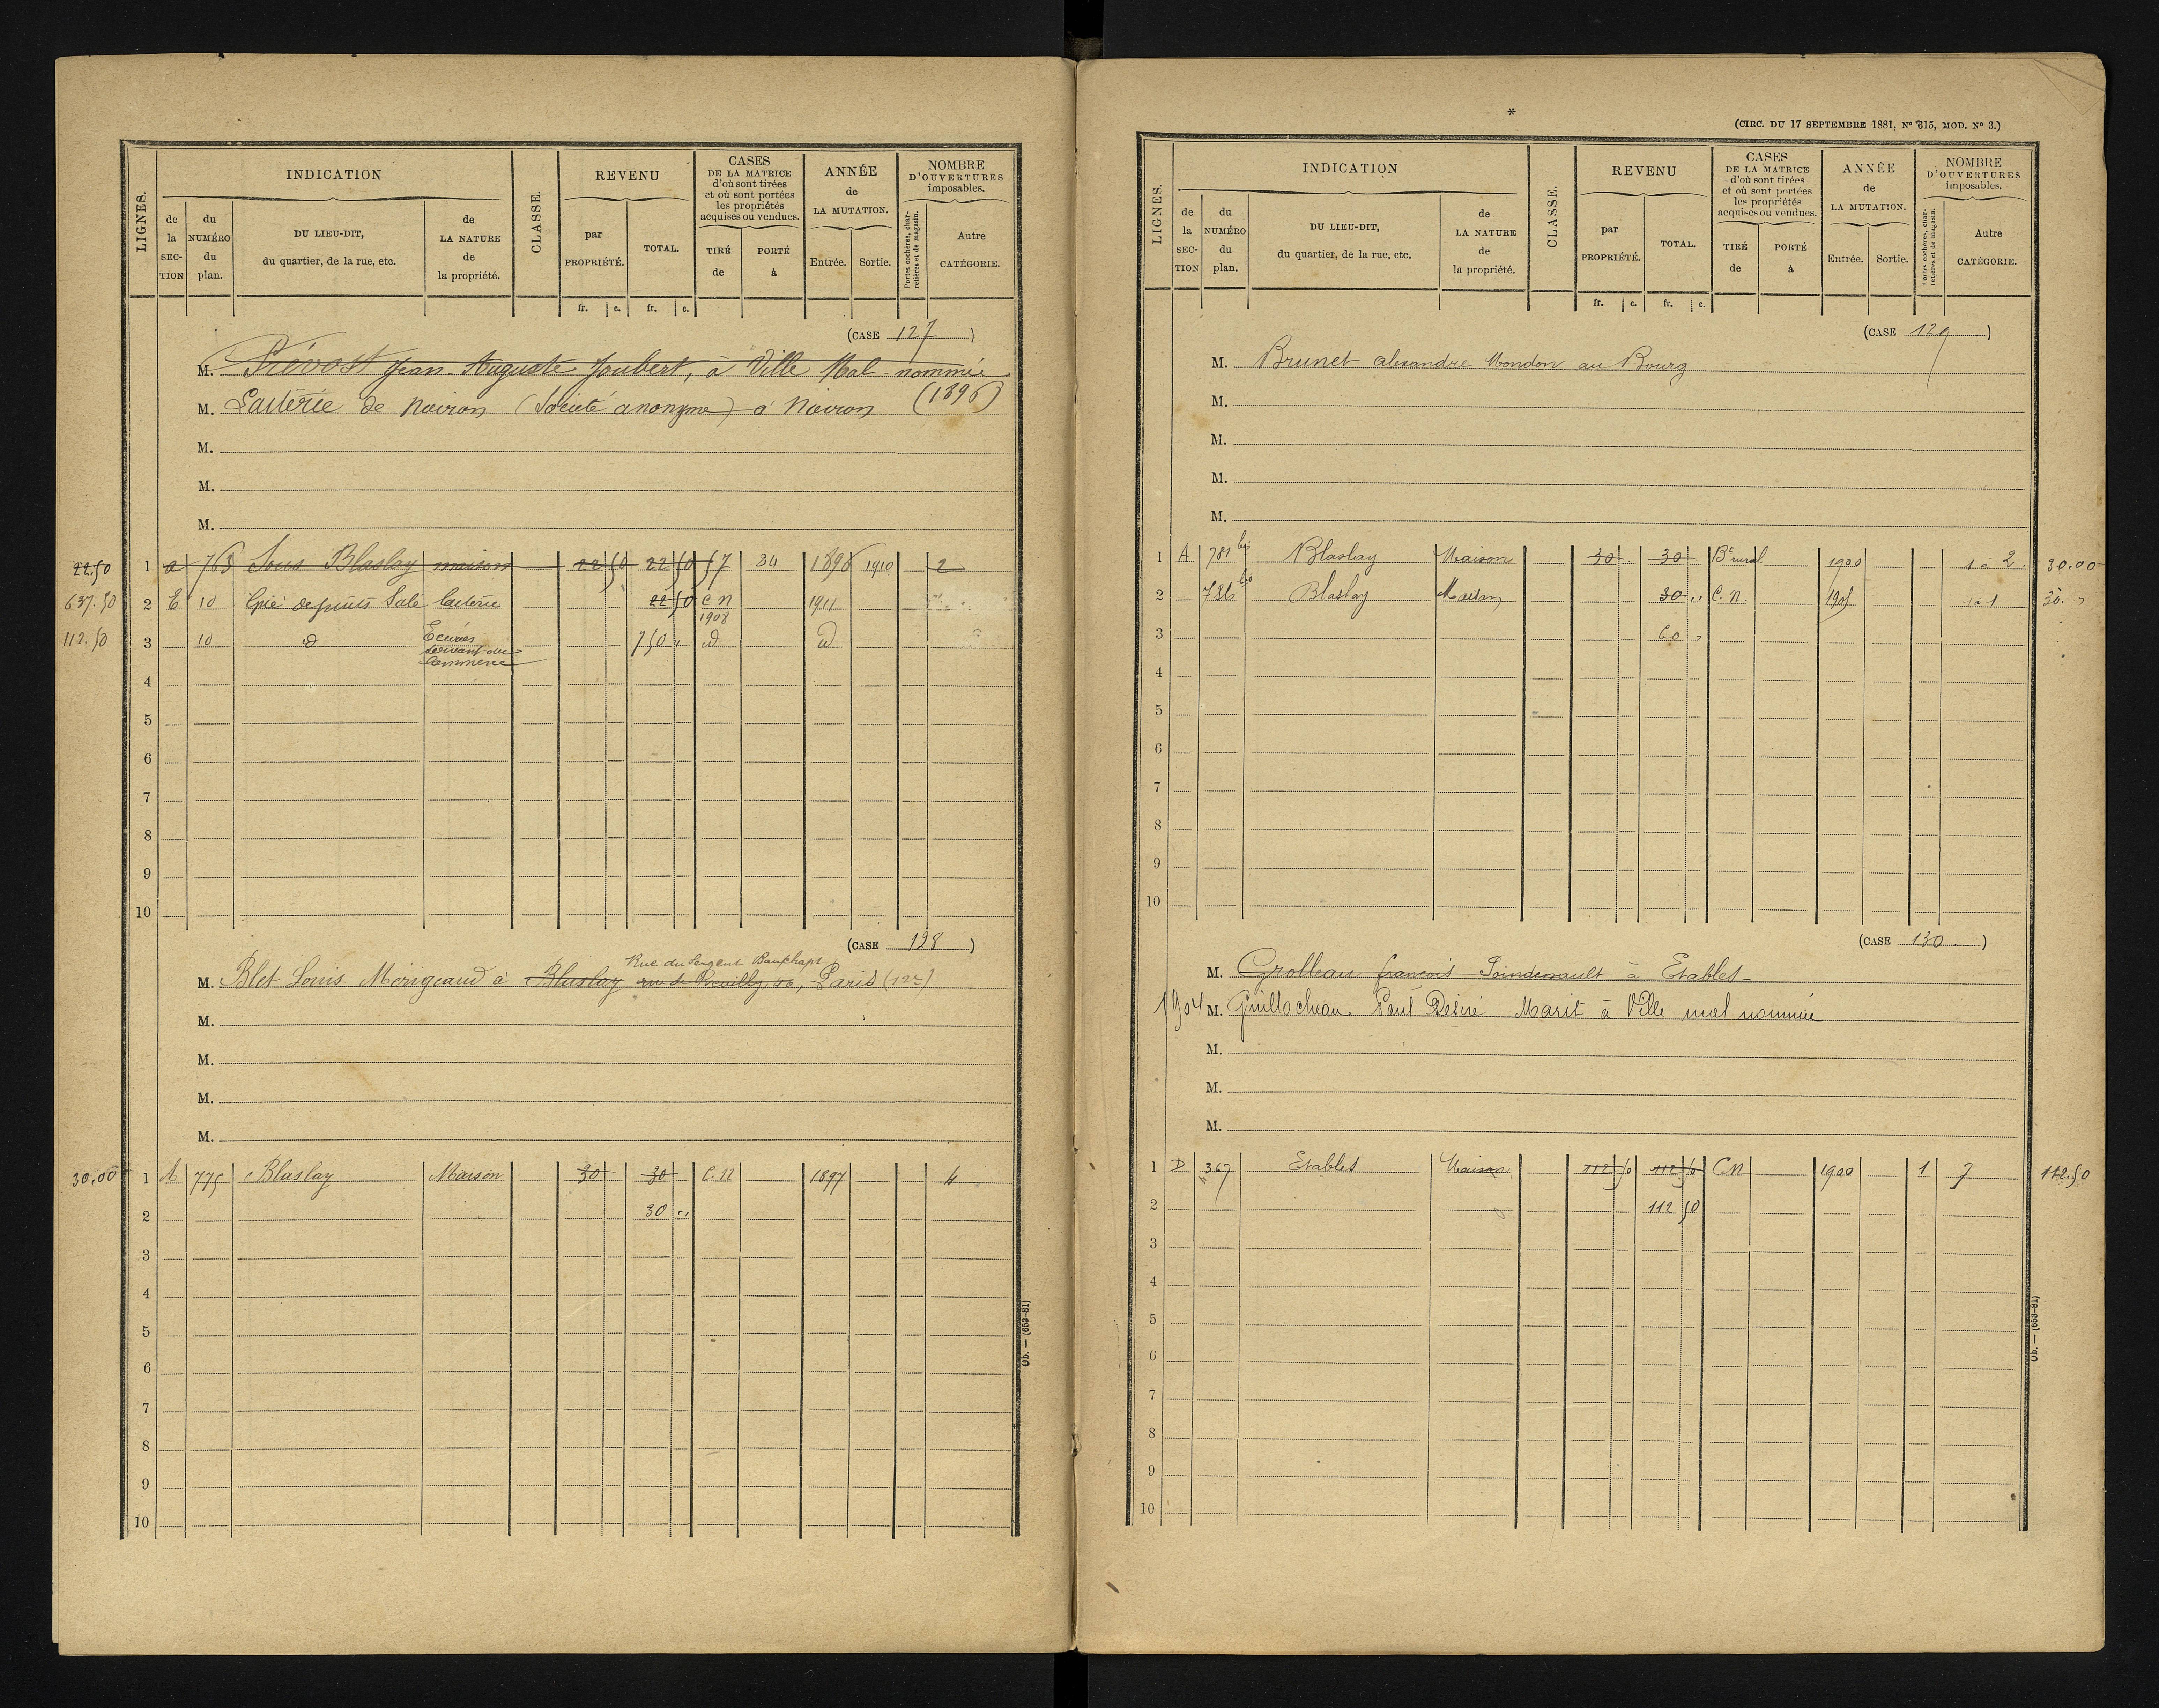 LIGNES.
INDICATION
de la SECTION
du NUMÉRO du plan.
DU LIEU-DIT, du quartier, de la rue, etc.
de LA NATURE de la propriété.
CLASSE.
REVENU
par PROPRIÉTÉ.
TOTAL.
CASES DE LA MATRICE d'où sont tirées et où sont portées les propriétés acquises ou vendues.
TIRÉ de
PORTÉ à
ANNÉE de LA MUTATION.
Entrée.
Sortie.
NOMBRE D'OUVERTURES imposables.
Portes cochères, charretières et de magasin.
Autre CATÉGORIE.
fr. c. fr. c.
(CASE 127)
M. Prévost Jean Auguste Joubert, à Ville Mal nommée
M. Laiterie de Noiron (Société anonyme) à Noiron (1896)
M.
M.
M.
22.50 1 a 765 Sous Blaslay maison 22 50 22 50 57 34 1896 1910 2
637.50 2 E 10 de puits Salé laiterie 22 50 C N 1908 1911
112.50 3 10 d Ecuries servant au Commerce 750 " d d
4
5
6
7
8
9
10
(CASE 128)
Rue du Sergent Bauchapt
M. Blet Louis Mérigeaud à Blaslay rue de Reuilly, Paris (12e)
M.
M.
M.
M.
30.00 1 A 775 Blaslay Maison 30 30 C.N 1897 4
2 30 "
3
4
5
6
7
8
9
10
Ob. — (653-81)
*
(CIRC. DU 17 SEPTEMBRE 1881, N° 615, MOD. N° 3.)
LIGNES.
INDICATION
de la SECTION
du NUMÉRO du plan.
DU LIEU-DIT, du quartier, de la rue, etc.
de LA NATURE de la propriété.
CLASSE.
REVENU
par PROPRIÉTÉ.
TOTAL.
CASES DE LA MATRICE d'où sont tirées et où sont portées les propriétés acquises ou vendues.
TIRÉ de
PORTÉ à
ANNÉE de LA MUTATION.
Entrée.
Sortie.
NOMBRE D'OUVERTURES imposables.
Portes cochères, charretières et de magasin.
Autre CATÉGORIE.
fr. c. fr. c.
(CASE 129)
M. Brunet alexandre Mondon au Bourg
M.
M.
M.
M.
1 A 781 bis Blaslay Maison 30 30 Bt rural 1900 1 à 2. 30.00
2 786 bis Blaslay Maison 30 " C.N. 1905 1 à 1 30. "
3 60 "
4
5
6
7
8
9
10
(CASE 130.)
M. Grolleau françois Poindenault à Etables
1904 M. Guillocheau Paul Désiré Marit à Ville mal nommée
M.
M.
M.
1 D 367 Etables Maison 112 50 112 50 CN 1900 1 7 112.50
2 112 50
3
4
5
6
7
8
9
10
Ob. — (653-81)